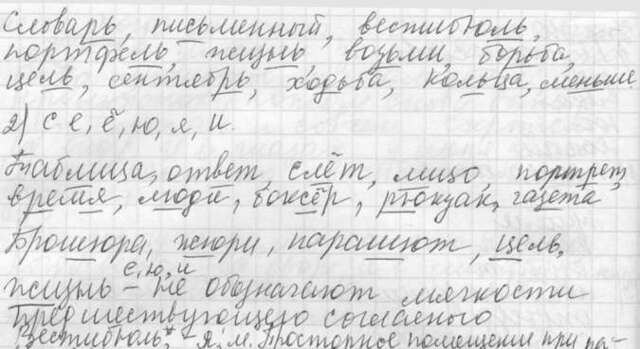 Словарь, письменный, вестибюль,
портфель, жизнь, возьми, борьба,
цель, сентябрь, ходьба, кольца, меньше
2) с е, ё, ю, я, и.
Таблица, ответ, слёт, лицо, портрет,
время, люди, боксёр, рюкзак, газета,
Брошюра, жюри, парашют, цель,
е, ю, и
жизнь - не обозначают мягкости
предшествующего согласного
Вестибюль, - я, м. Просторное помещение при па-